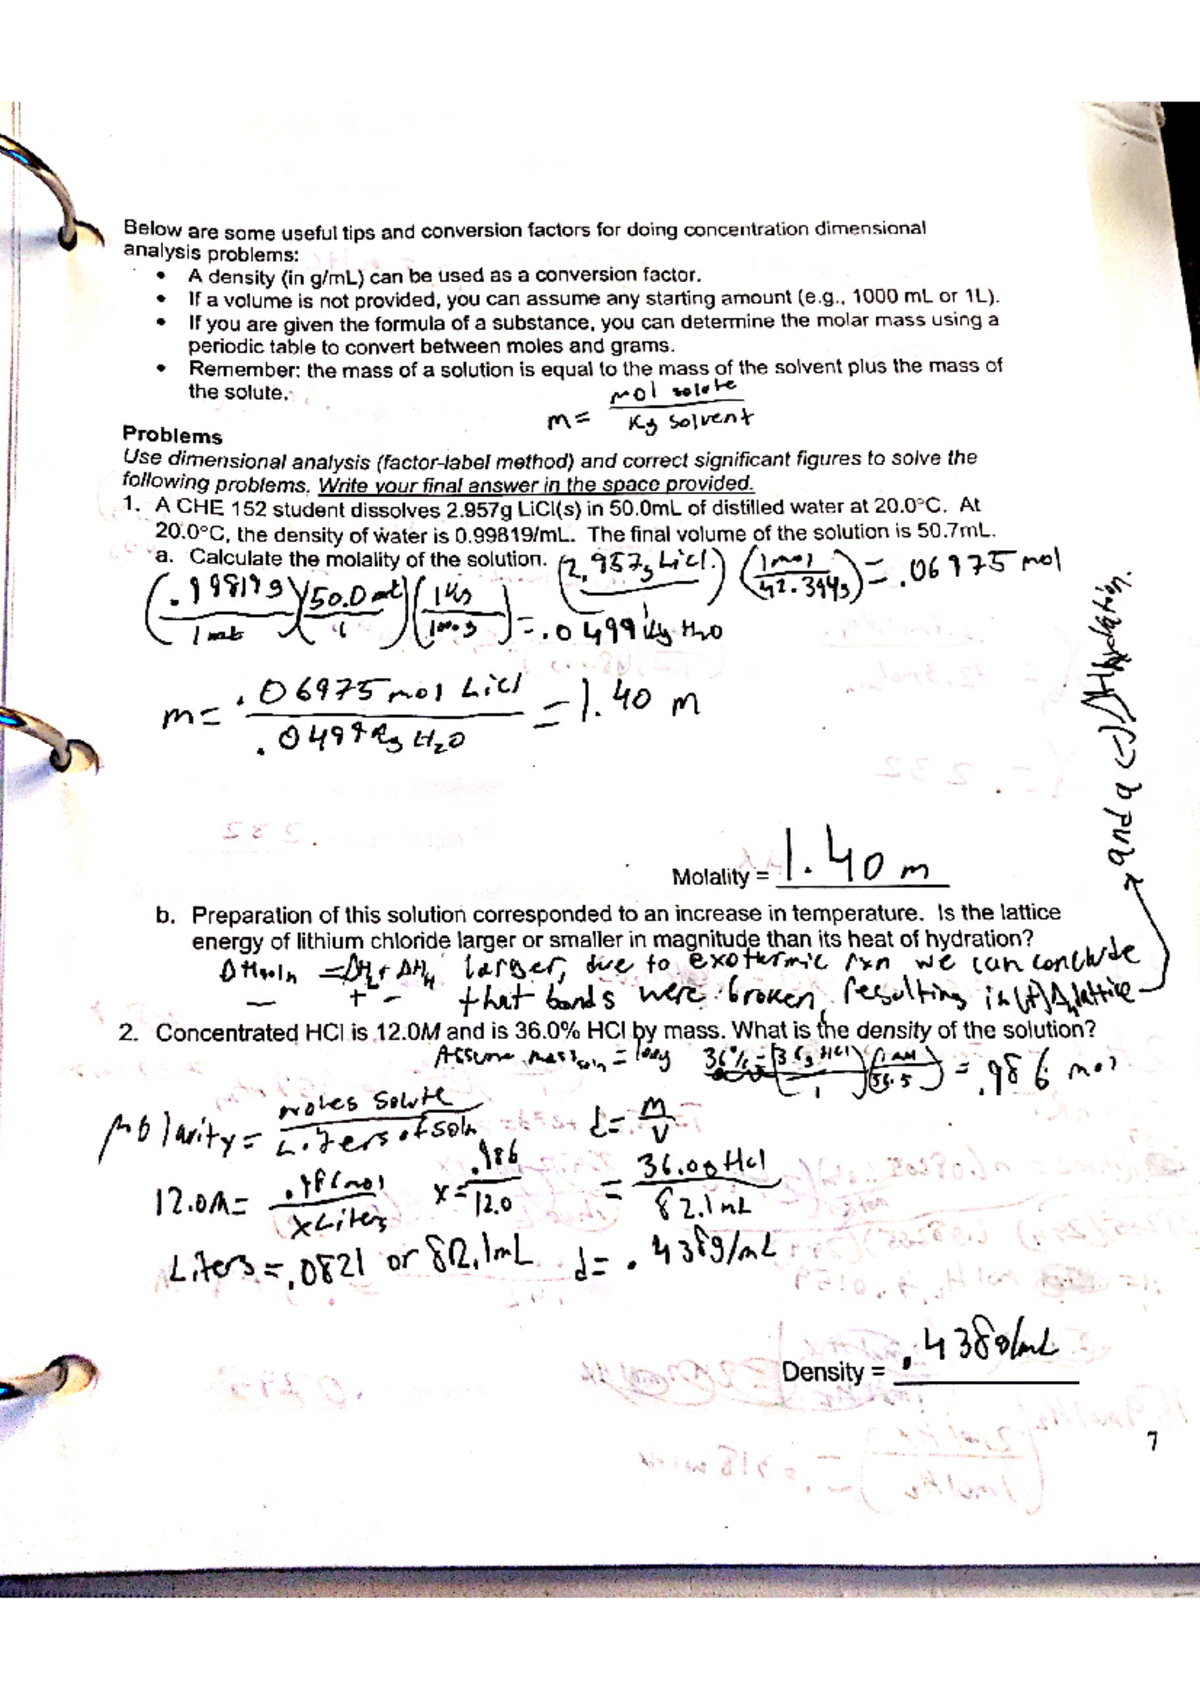 Below are some useful tips and conversion factors for doing concentration dimensional
analysis problems:
• A density (in g/mL) can be used as a conversion factor.
• If a volume is not provided, you can assume any starting amount (e.g., 1000 mL or 1L).
• If you are given the formula of a substance, you can determine the molar mass using a
periodic table to convert between moles and grams.
• Remember: the mass of a solution is equal to the mass of the solvent plus the mass of
the solute.
m = mol solute / Kg solvent
Problems
Use dimensional analysis (factor-label method) and correct significant figures to solve the
following problems. Write your final answer in the space provided.
1. A CHE 152 student dissolves 2.957g LiCl(s) in 50.0mL of distilled water at 20.0°C. At
20.0°C, the density of water is 0.99819/mL. The final volume of the solution is 50.7mL.
a. Calculate the molality of the solution.
(2.957g LiCl) (1 mol / 42.394g) = .06975 mol
(.99819g / 1 mL) (50.0 mL / 1) (1 Kg / 1000g) = .0499 Kg H2O
m = .06975 mol LiCl / .0499 Kg H2O = 1.40 m
Molality = 1.40 m
b. Preparation of this solution corresponded to an increase in temperature. Is the lattice
energy of lithium chloride larger or smaller in magnitude than its heat of hydration?
ΔHsoln = ΔHL + ΔHH larger, due to exothermic rxn we can conclude
− + − that bonds were broken, resulting in (+)Δlattice
and a (-) ΔHhydration.
2. Concentrated HCl is 12.0M and is 36.0% HCl by mass. What is the density of the solution?
Assume mass soln = 100g 36% = (36g HCl / 1) (1 / 36.5) = .986 mol
Molarity = Moles Solute / Liters of soln d = M / V
12.0M = .986 mol / x Liters x = .986 / 12.0 = 36.0g HCl / 82.1 mL
Liters = .0821 or 82.1mL d = .438g/mL
Density = .438g/mL
7